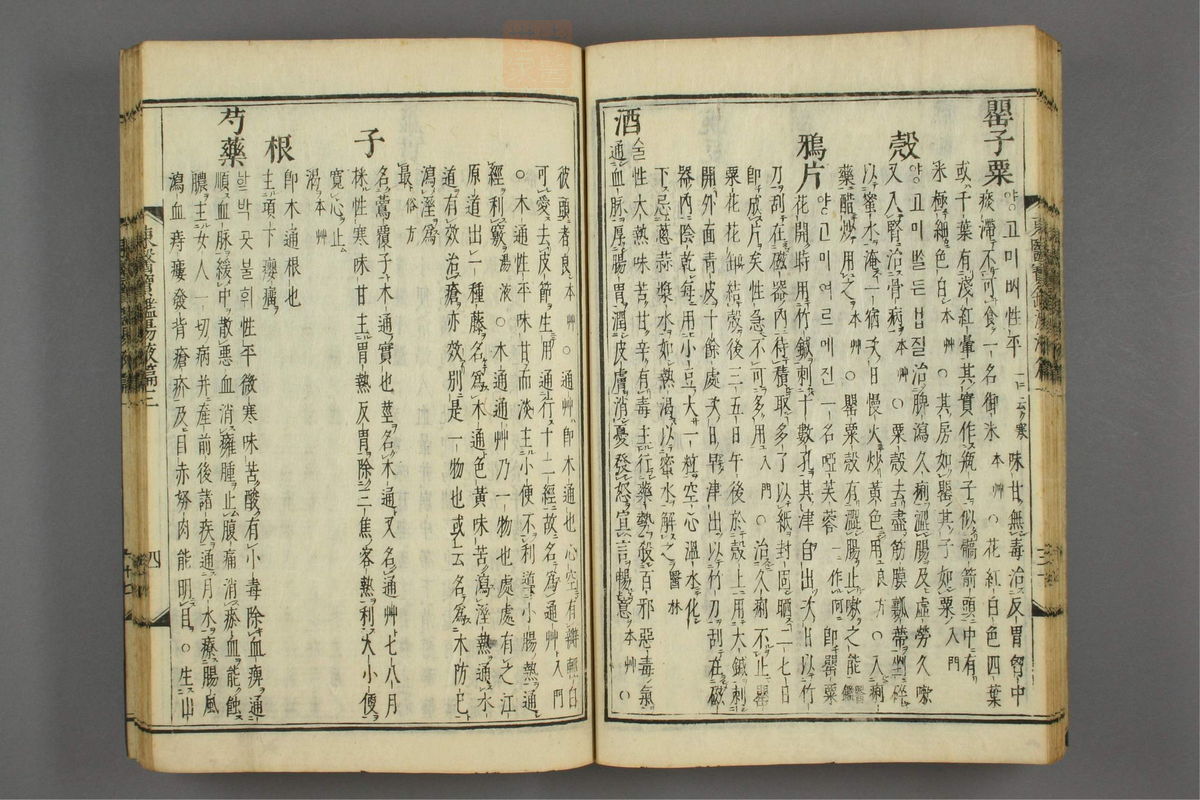 罌子粟
야ᇰ고미ᄡᅵ性平一云寒味甘無毒治反胃胷中
痰滯不可食一名御米本艸○花紅白色四葉
或千葉有淺紅暈其實作甁子似髇箭頭中有
米極細色白本艸○其房如罌其子如粟入門
殼
야ᇰ고미ᄡᅵ든겁질治脾瀉久痢澁腸及虛勞久嗽
又入腎治骨病本艸○粟殼去盡筋膜瓤蔕剉碎
以蜜水淹一宿次日慢火炒黃色用良方○入痢
藥醋炒用之本艸○罌粟殼有澁腸止嗽之能醫鑑
鴉片
야ᇰ고미여르메진一名啞芙蓉一作阿即罌粟
花開時用竹鍼刺十數孔其津自出次日以竹
刀刮在磁器內待積取多了以紙封固晒二七日
即成片矣性急不可多用入門○治久痢不止罌
粟花花卸結殼後三五日午後於殼上用大鍼刺
開外面靑皮十餘處次日早津出以竹刀刮在磁
器內陰乾每用小豆大一粒空心溫水化
下忌蔥蒜漿水如熱渴以蜜水解之醫林
酒
술性大熱味苦甘辛有毒主行藥勢殺百邪惡毒氣
通血脉厚腸胃潤皮膚消憂發怒宣言暢意本艸○
彼頭者良本艸○通艸即木通也心空有瓣輕白
可愛去皮節生用通行十二經故名爲通艸入門
○木通性平味甘而淡主小便不利導小腸熱通
經利竅湯液○木通通艸乃一物也處處有之江
原道出一種藤名爲木通色黃味苦瀉濕熱通水
道有效治瘡亦效別是一物也或云名爲木防己
瀉濕爲
最俗方
子
名䴏覆子木通實也莖名木通又名通艸七八月
採性寒味甘主胃熱反胃除三焦客熱利大小便
寬心止
渴本艸
根
即木通根也
主項下癭癀
芍藥
함박곳불휘性平微寒味苦酸有小毒除血痺通
順血脉緩中散惡血消癰腫止腹痛消瘀血能蝕
膿主女人一切病幷産前後諸疾通月水療腸風
瀉血痔瘻發背瘡疥及目赤努肉能明目○生山